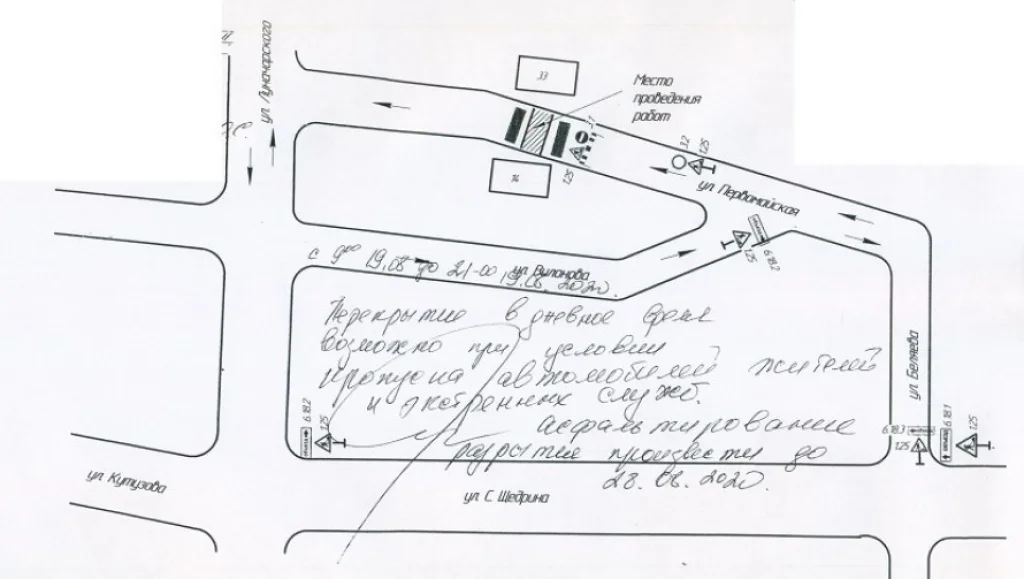 ул. Луначарского
33
Место
проведения
работ
3.1
1.25
34
3.2
1.25
ул. Первомайская
1.25
6.18.2
ул. Вилонова
с 8-00 19.08 до 21-00 19.08.2020.
Перекрытие в дневное время
возможно при условии
пропуска автомобилей жителей
и экстренных служб.
асфальтирование
разрытия произвести до
28.08.2020.
6.18.2
1.25
ул. Беляева
6.18.3
1.25
6.18.1
1.25
ул. Кутузова
ул. С. Щедрина